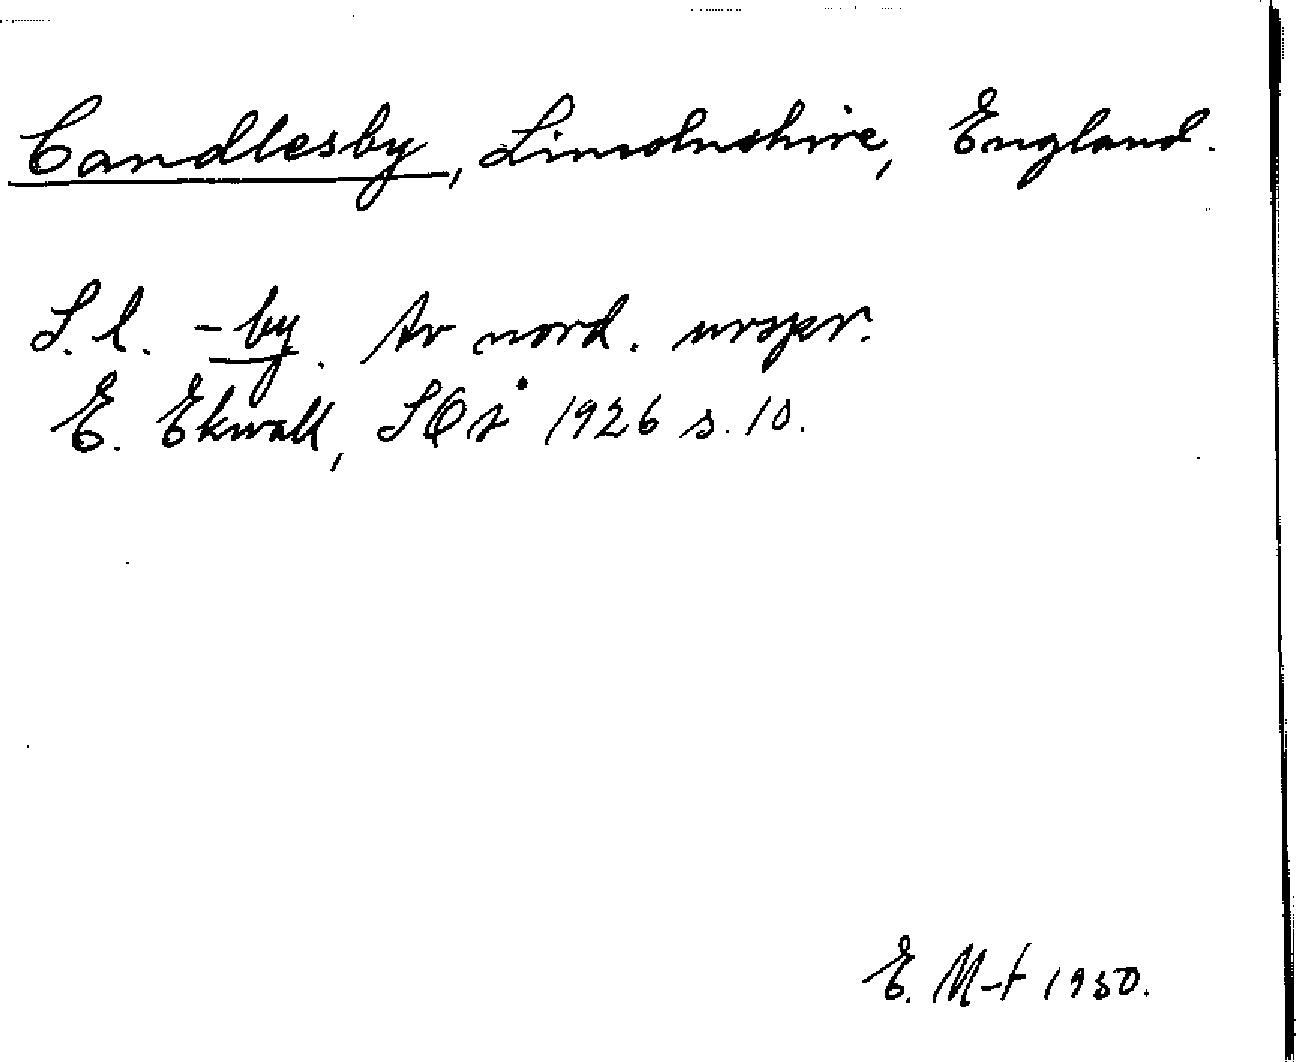 Candlesby, Lincolnshire, England.
S. l. -by. Av nord. urspr.
E. Ekwall, SOÅ 1926 s. 10.
E. M-t 1930.